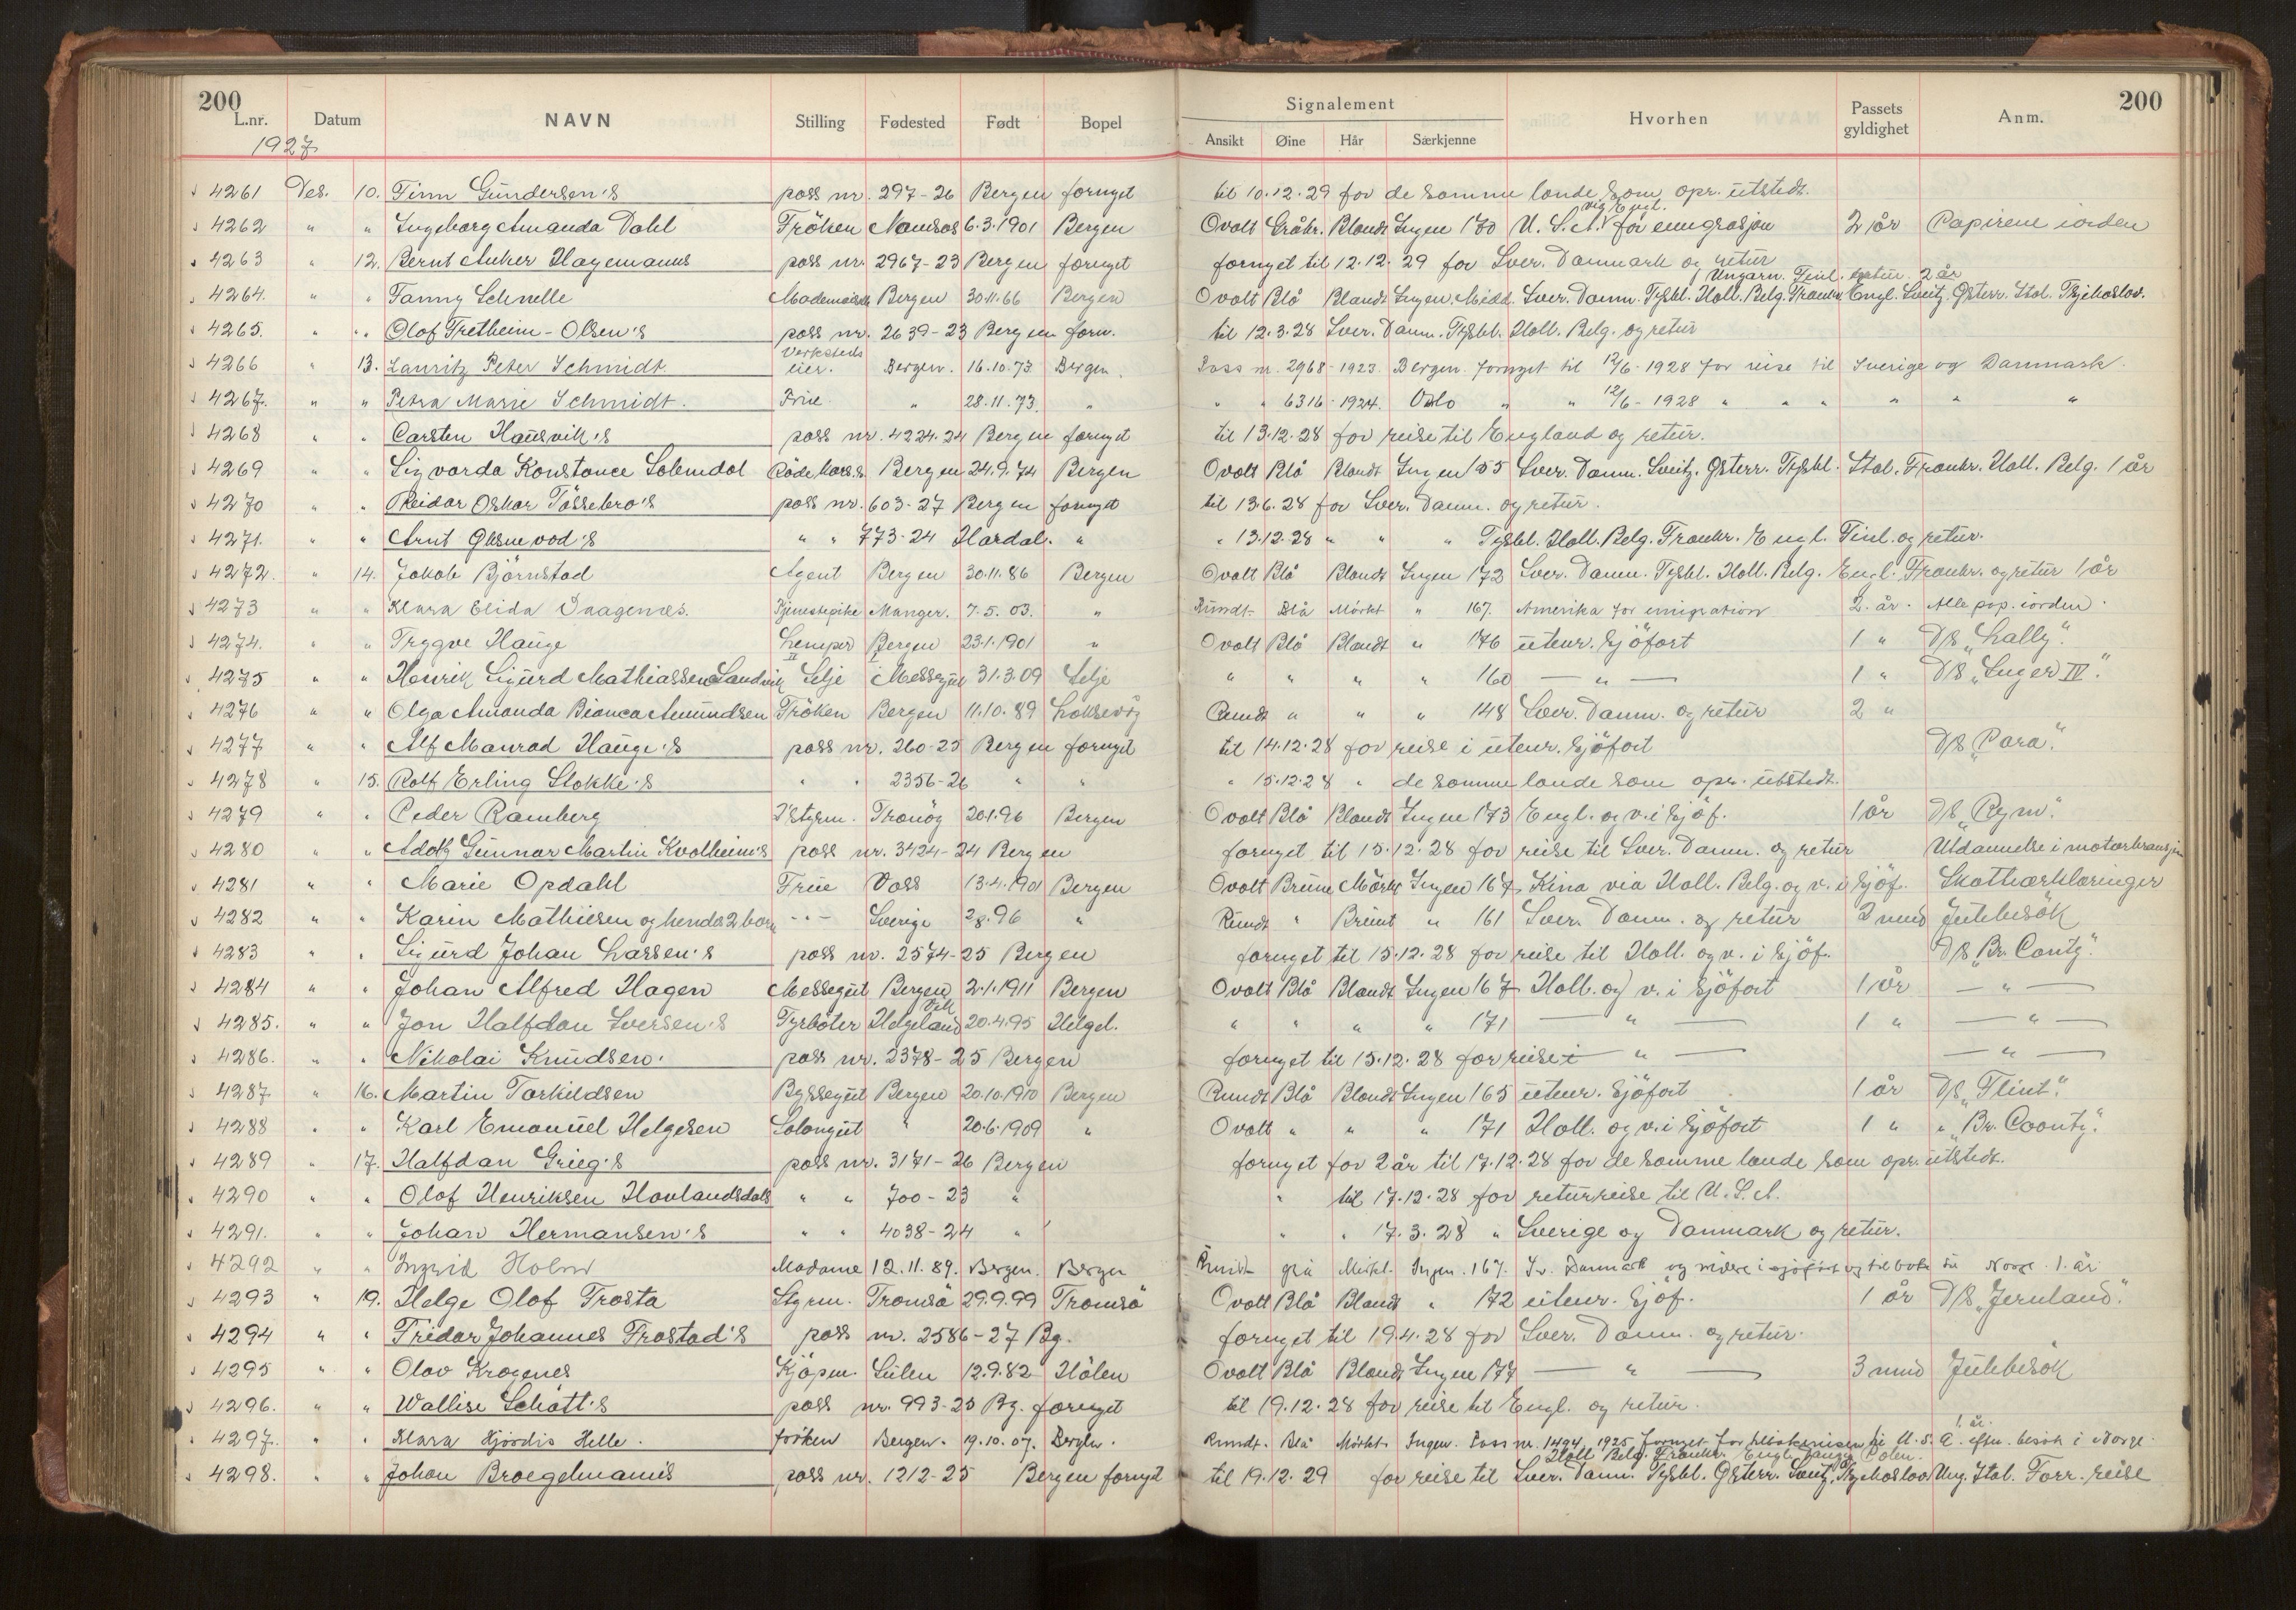 200
L.nr. Datum NAVN Stilling Fødested Født Bopel
Signalement
Ansikt Øine Hår Særkjenne Hvorhen Passets gyldighet Anm. 200
1927
4261 Des. 10. Finn Gundersen's pass nr. 297-26 Bergen fornyet til 10.12.29 for de samme lande som opr. utstedt.
via Engl.
4262 " " Ingeborg Amanda Dahl Fröken Namsos 6.3.1901 Bergen Ovalt Gråbr. Blandt Ingen 170 U.S.A. for emigrasjon 2 år Papirene iorden
4263 " 12. Bernt Anker Hagemanns pass nr. 2967-23 Bergen fornyet fornyet til 12.12.29 for Sver. Danmark og retur
Ungarn. Finl. retur 2 år
4264. " " Fanny Schnelle Bergen 30.11.66 Bergen Ovalt Blå Blandt Ingen. Midd. Sver. Danm. Tyskl. Holl. Belg. Frankr. Engl. Sveitz. Österr. Ital. Tsjekoslov.
4265. " " Olof Tretheim-Olsen's pass nr. 2639-23 Bergen forn. til 12.3.28 Sver. Danm. Tyskl. Holl. Belg. og retur
4266 " 13. Lauritz Peter Schmidt. Verksteds eier. Bergen. 16.10.73 Bergen. Pass nr. 2968-1923 Bergen fornyet til 12/6-1928 for reise til Sverige og Danmark.
4267. " " Petra Marie Schmidt. Frue. " 28.11.73. " " " 6316-1924. Oslo " " 12/6-1928 " " " " " "
4268 " " Carsten Hausvik's pass nr. 4224-24 Bergen fornyet til 13.12.28 for reise til England og retur.
4269 " " Sigvarda Konstance Solemdal Bergen 24.9.74 Bergen Ovalt Blå Blandt Ingen 155 Sver. Danm. Sveitz. Österr. Tyskl. Ital. Frankr. Holl. Belg. 1 år
4270 " " Reidar Oskar Tössebro's pass nr. 603-27 Bergen fornyet til 13.6.28 for Sver. Danm. og retur.
4271. " " Arnt " " 773-24 Hardal. " " 13.12.28 " " " Tyskl. Holl. Belg. Frankr. Engl. Finl. og retur.
4272. " 14. Jakob Björnstad Agent Bergen 30.11.86 Bergen Ovalt Blå Blandt Ingen 172 Sver. Danm. Tyskl. Holl. Belg. Engl. Frankr. og retur 1 år
4273 " " Klara Elida Vaagenes. Tjenestepike Manger. 7.5.03. " Rundt Blå Mörkt " 167. Amerika for emigration 2. år. Alle pap. iorden.
4274. " " Trygve Hauge Lemper Bergen 23.1.1901 " Ovalt Blå Blandt " 176 utenr. sjöfart 1 " D/S "Lally".
4275 " " Henrik Sigurd Mathiassen Sandvik Selje Messegut 31.3.09 Selje " " " " 160 — " — 1 " D/S "Inger IV".
4276 " " Olga Amanda Bianca Amundsen Fröken Bergen 11.10.89 Loksevåg Rundt " " " 148 Sver. Danm. og retur 2 "
4277 " " Alf Manrad Hauge's pass nr. 260-25 Bergen fornyet til 14.12.28 for reise i utenr. sjöfart D/S "Para".
4278 " 15. Rolf Erling Stokke's " " 2356-26 " " " 15.12.28 " de samme lande som opr. utstedt.
4279 " " Peder Ramberg Tranöy 20.1.96 Bergen Ovalt Blå Blandt Ingen 173 Engl. og v. i sjöf. 1 år D/S "Rym".
4280 " " Adolf Gunnar Martin Kvalheim's pass nr. 3424-24 Bergen fornyet til 15.12.28 for reise til Sver. Danm. og retur Utdannelse i motorbransjen
4281 " " Marie Opdahl Frue Voss 13.4.1901 Bergen Ovalt Brune Mörkt Ingen 167 Kina via Holl. Belg. og v. i sjöf. Skatteerklæringer
4282 " " Karin Mathiesen og hendes 2 barn - " - Sverige 2/8.96 " Rundt " Brunt " 161 Sver. Danm. og retur 2 mnd Julebesök
4283 " " Sigurd Johan Larsen's pass nr. 2574-25 Bergen fornyet til 15.12.28 for reise til Holl. og v. i sjöf. D/S "Br. County".
4284 " " Johan Alfred Hagen Messegut Bergen 2.1.1911 Bergen Ovalt Blå Blandt Ingen 167 Holl. og v. i sjöfart 1 år — " —
4285. " " Jon Halfdan Iversen's Fyrböter Helgeland 20.4.95 Helgel. " " " " 171 — " — 1 " — " —
4286. " " Nikolai Knudsen. pass nr. 2378-25 Bergen fornyet til 15.12.28 for reise i — " — — " —
4287 " 16. Martin Torkildsen Byssegut Bergen 20.10.1910 Bergen Rundt Blå Blandt Ingen 165 utenr. sjöfart 1 år D/S "Flint".
4288 " " Karl Emanuel Helgesen Salongut " 20.6.1909 " Ovalt " " " 171 Holl. og v. i sjöfart 1 " " "Br. County".
4289 " 17. Halfdan Grieg's pass nr. 3171-26 Bergen fornyet for 2 år til 17.12.28 for de samme lande som opr. utstedt.
4290 " " Olof Henriksen Hovlandsdals " " 700-23 " " til 17.12.28 for returreise til U.S.A.
4291. " " Johan Hermansen's " " 4038-24 " " " 17.3.28 " Sverige og Danmark og retur.
4292 " " Ingrid Holm Madame 12.11.89. Bergen. Bergen Rundt grå Mörkt. Ingen. 167. Sv. Danmark og videre i sjöfart og tilbake til Norge. 1. år
4293 " 19. Helge Olof Trosta Styrm. Tromsö 29.9.99 Tromsö Ovalt Blå Blandt " 172 utenr. sjöf. 1 år D/S "Jernland".
4294 " " Fridar Johannes Frostad's pass nr. 2586-27 Bg. fornyet til 19.4.28 for Sver. Danm. og retur.
4295 " " Olav Krogenes Kjöpm. Sulen 12.9.82 Hålen Ovalt Blå Blandt Ingen 177 — " — 3 mnd Julebesök
4296. " " Wallise Schött's pass nr. 993-25 Bg. fornyet til 19.12.28 for reise til Engl. og retur.
1. år.
4297. " " Klara Hjördis Helle. fröken Bergen. 19.10.07. Bergen. Rundt. Blå Mörkt. Ingen. Pass nr. 1494-1925 fornyet for tilbakereisen til U.S.A. efter besök i Norge.
Holl Belg. Frankr. Engl. Danzig Polen.
4298. " " Johan Broegelmann's pass nr. 1212-25 Bergen fornyet til 19.12.29 for reise til Sver. Danm. Tyskl. Österr. Sveitz. Tsjekoslov Ung. Ital. Forr. reise